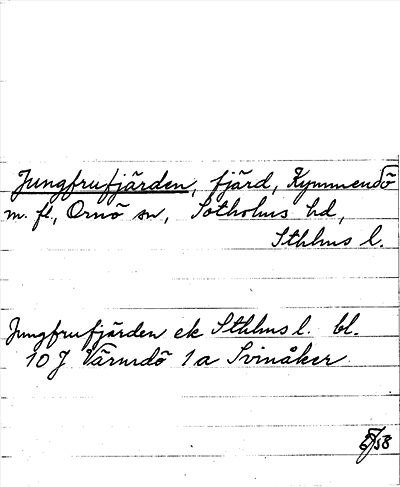 Jungfrufjärden, fjärd, Kymmendö
m. fl., Ornö sn, Sotholms hd,
Sthlms l.
Jungfrufjärden ek Sthlms l. bl.
10 J Värmdö 1 a Svinåker